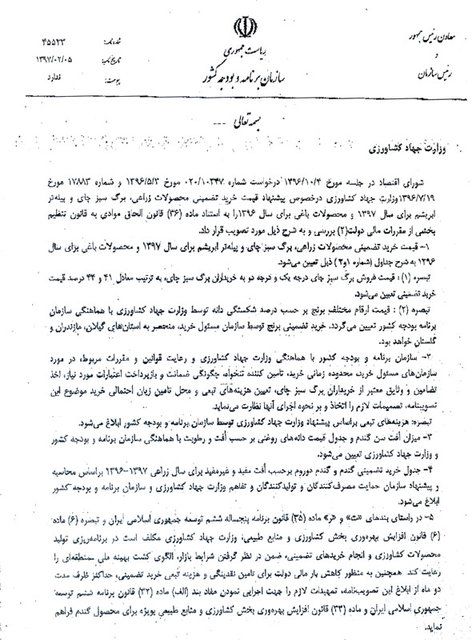 معاون رئیس جمهور
و
رئیس سازمان
ریاست جمهوری
سازمان برنامه و بودجه کشور
شماره: ۴۵۵۲۳
تاریخ: ۱۳۹۷/۰۲/۰۵
پیوست: ندارد
بسمه تعالی
وزارت جهاد کشاورزی
شورای اقتصاد در جلسه مورخ ۱۳۹۶/۱۰/۴ درخواست شماره ۰۲۰/۱۰۳۴۷ مورخ ۱۳۹۶/۵/۳ و شماره ۱۷۸۸۳ مورخ
۱۳۹۶/۷/۱۹ وزارت جهاد کشاورزی درخصوص پیشنهاد قیمت خرید تضمینی محصولات زراعی، برگ سبز چای و پیله‌تر
ابریشم برای سال ۱۳۹۷ و محصولات باغی برای سال ۱۳۹۶ را به استناد ماده (۳۶) قانون الحاق موادی به قانون تنظیم
بخشی از مقررات مالی دولت(۲) بررسی و به شرح ذیل مورد تصویب قرار داد.
۱- قیمت خرید تضمینی محصولات زراعی، برگ سبز چای و پیله‌تر ابریشم برای سال ۱۳۹۷ و محصولات باغی برای سال
۱۳۹۶ به شرح جداول (شماره ۱و۲) ذیل تعیین می‌شود.
تبصره (۱): قیمت فروش برگ سبز چای درجه یک و درجه دو به خریداران برگ سبز چای، به ترتیب معادل ۴۱ و ۴۴ درصد قیمت
خرید تضمینی تعیین می‌شود.
تبصره (۲): قیمت ارقام مختلف برنج بر حسب درصد شکستگی دانه توسط وزارت جهاد کشاورزی با هماهنگی سازمان
برنامه بودجه کشور تعیین می‌گردد. خرید تضمینی برنج توسط سازمان مسئول خرید، منحصر به استان‌های گیلان، مازندران و
گلستان خواهد بود.
۲- سازمان برنامه و بودجه کشور با هماهنگی وزارت جهاد کشاورزی و رعایت قوانین و مقررات مربوط، در مورد
سازمان‌های مسئول خرید، محدوده زمانی خرید، تامین کننده تنخواه، چگونگی ضمانت و بازپرداخت اعتبارات مورد نیاز، اخذ
تضامین و وثایق معتبر از خریداران برگ سبز چای، تعیین هزینه‌های تبعی و محل تامین زیان احتمالی خرید موضوع این
تصویبنامه، تصمیمات لازم را اتخاذ و بر نحوه اجرای آنها نظارت می‌نماید.
تبصره: هزینه‌های تبعی براساس پیشنهاد وزارت جهاد کشاورزی توسط سازمان برنامه و بودجه کشور ابلاغ می‌شود.
۳- میزان آفت سن گندم و جدول قیمت دانه‌های روغنی بر حسب افت و رطوبت با هماهنگی سازمان برنامه و بودجه کشور
و وزارت جهاد کشاورزی تعیین می‌شود.
۴- جدول خرید تضمینی گندم و گندم دوروم برحسب افت مفید و غیرمفید برای سال زراعی ۱۳۹۷-۱۳۹۶ براساس محاسبه
و پیشنهاد سازمان حمایت مصرف‌کنندگان و تولیدکنندگان و تفاهم وزارت جهاد کشاورزی و سازمان برنامه و بودجه کشور
ابلاغ می‌شود.
۵- در راستای بندهای «ت» و «ر» ماده (۳۵) قانون برنامه پنجساله ششم توسعه جمهوری اسلامی ایران و تبصره (۶) ماده
(۶) قانون افزایش بهره‌وری بخش کشاورزی و منابع طبیعی، وزارت جهاد کشاورزی مکلف است در برنامه‌ریزی تولید
محصولات کشاورزی و انجام خریدهای تضمینی، ضمن در نظر گرفتن شرایط بازار، الگوی کشت بهینه ملی منطقه‌ای را
رعایت کند. همچنین به منظور کاهش بار مالی دولت برای تامین نقدینگی و هزینه تبعی خرید تضمینی، حداکثر ظرف مدت
دو ماه از ابلاغ این تصویبنامه، تمهیدات لازم را جهت اجرایی نمودن مفاد بند (الف) ماده (۳۲) قانون برنامه ششم توسعه
جمهوری اسلامی ایران و ماده (۳۳) قانون افزایش بهره‌وری بخش کشاورزی و منابع طبیعی بویژه برای محصول گندم فراهم
نماید.